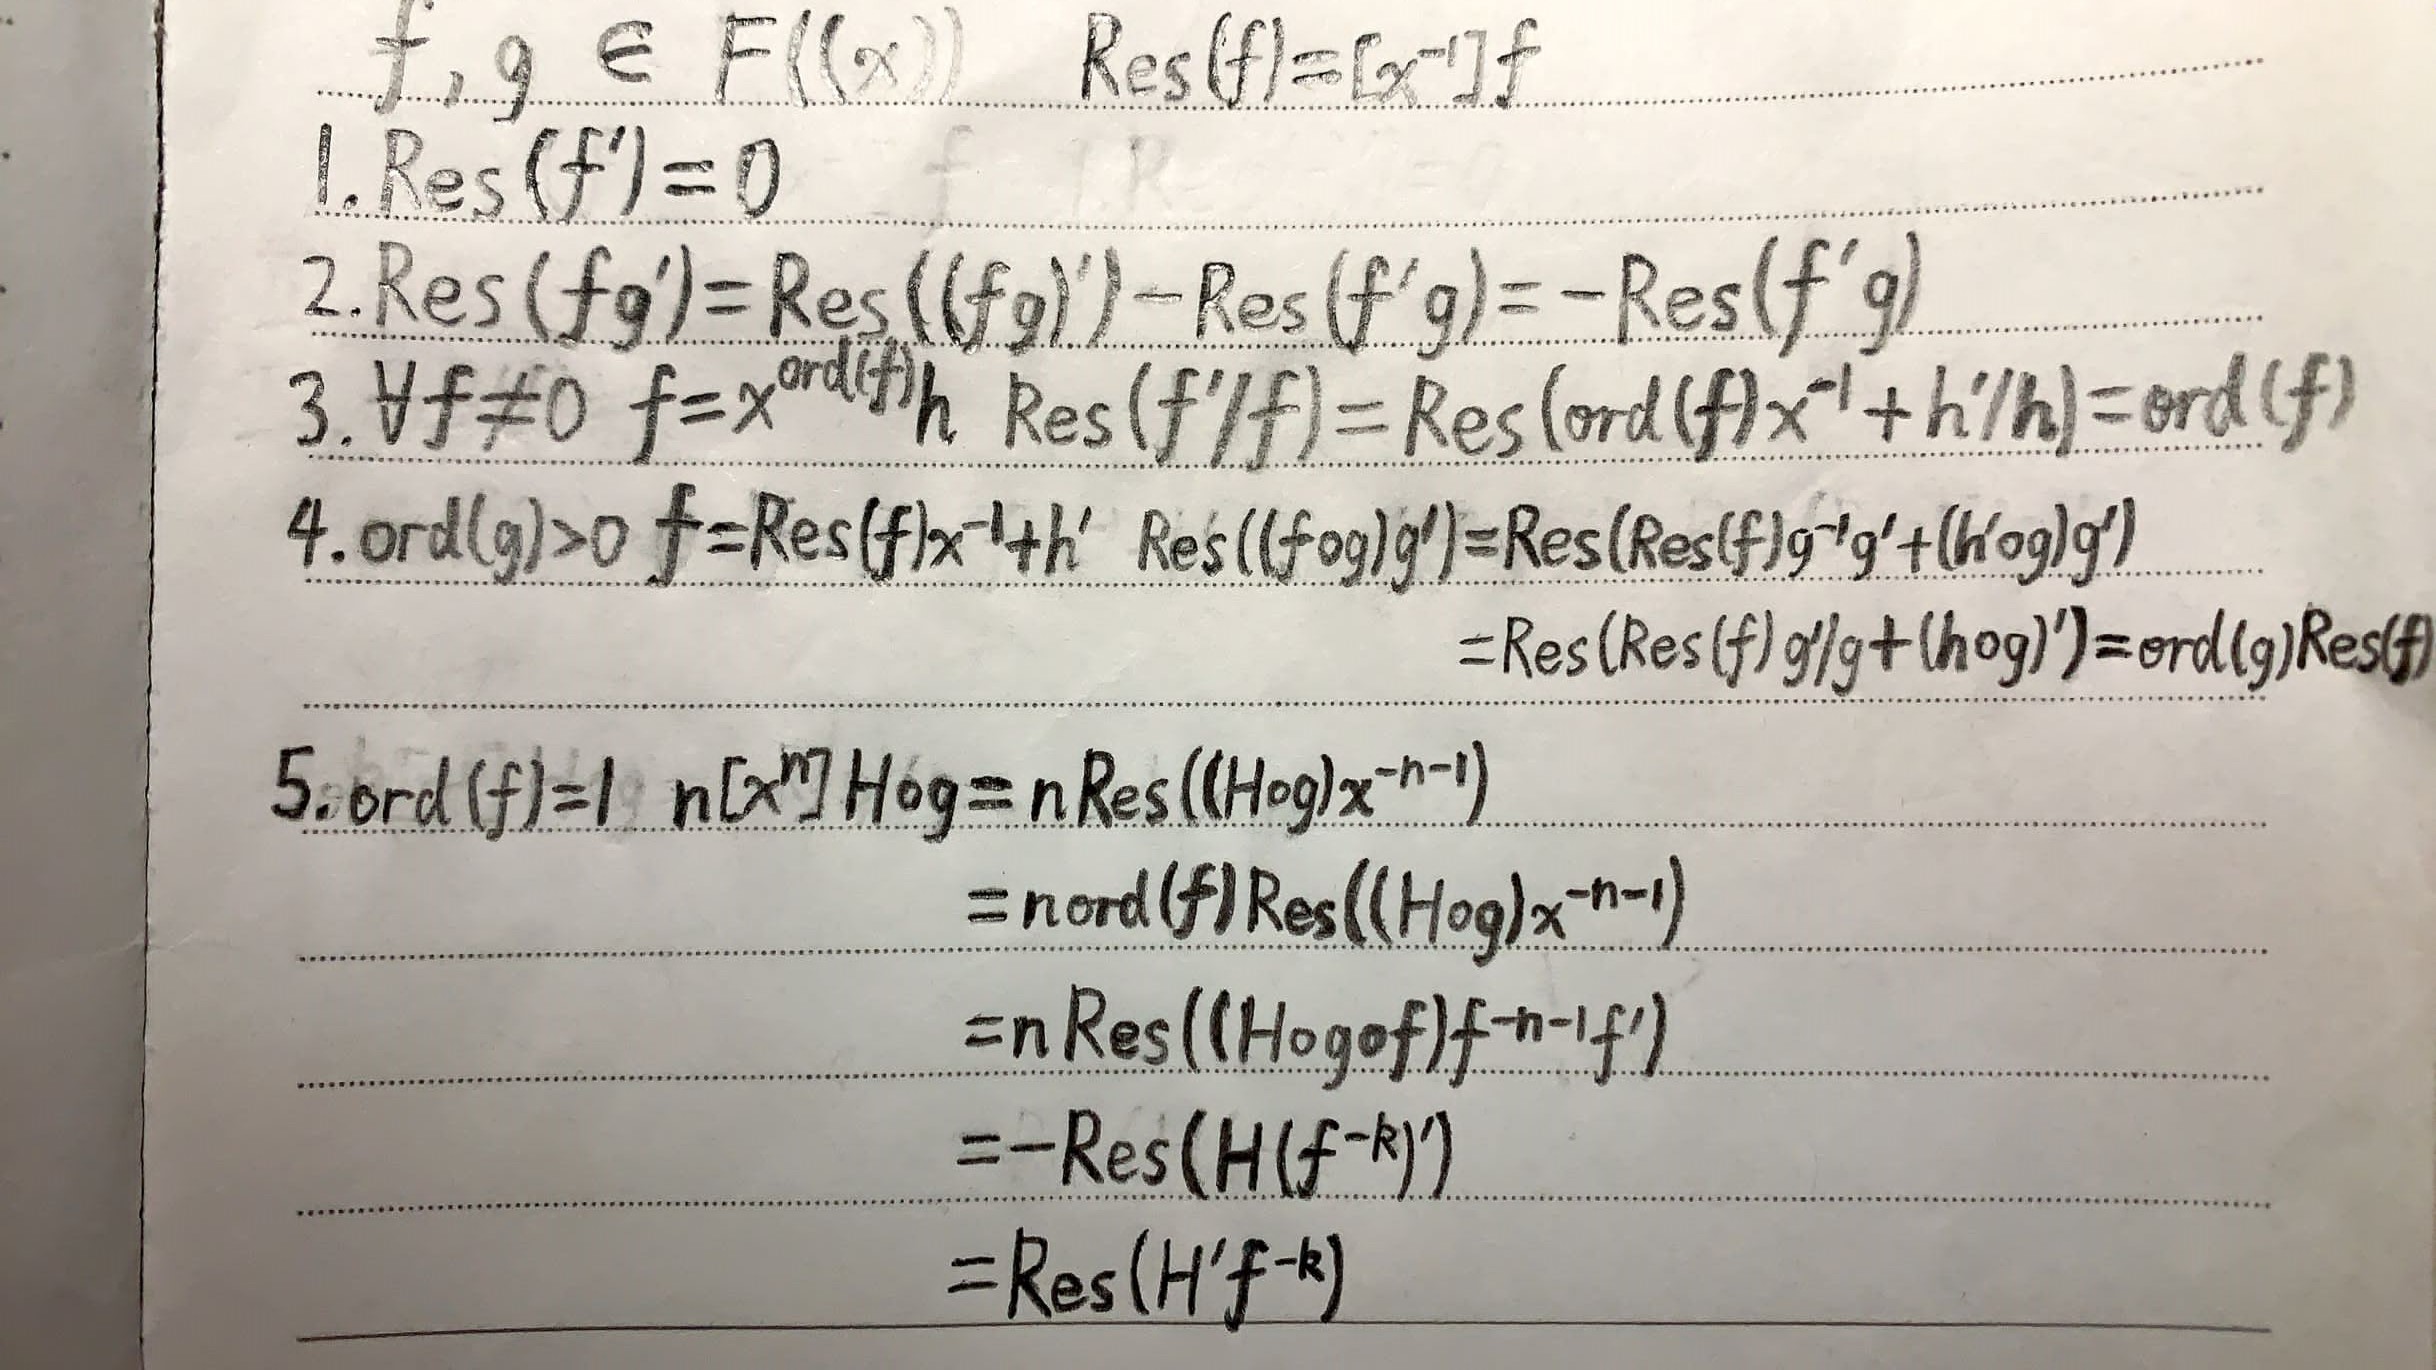 f, g ∈ F((x)) Res(f)=[x⁻¹]f
1. Res(f')=0
2. Res(fg')=Res((fg)')-Res(f'g)=-Res(f'g)
3. ∀f≠0 f=x^{ord(f)}h Res(f'/f)=Res(ord(f)x⁻¹+h'/h)=ord(f)
4. ord(g)>0 f=Res(f)x⁻¹+h' Res((f∘g)g')=Res(Res(f)g⁻¹g'+(h'∘g)g')
=Res(Res(f)g'/g+(h∘g)')=ord(g)Res(f)
5. ord(f)=1 n[xⁿ]H∘g=nRes((H∘g)x⁻ⁿ⁻¹)
=nord(f)Res((H∘g)x⁻ⁿ⁻¹)
=nRes((H∘g∘f)f⁻ⁿ⁻¹f')
=-Res(H(f⁻ᵏ)')
=Res(H'f⁻ᵏ)